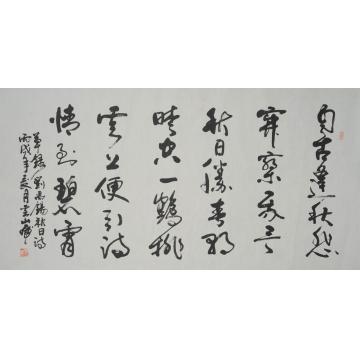 自古逢秋悲
寂寥我言
秋日勝春朝
晴空一鶴排
雲上便引詩
情到碧霄
草錄劉禹錫秋日詩
丙戌年夏月雲山